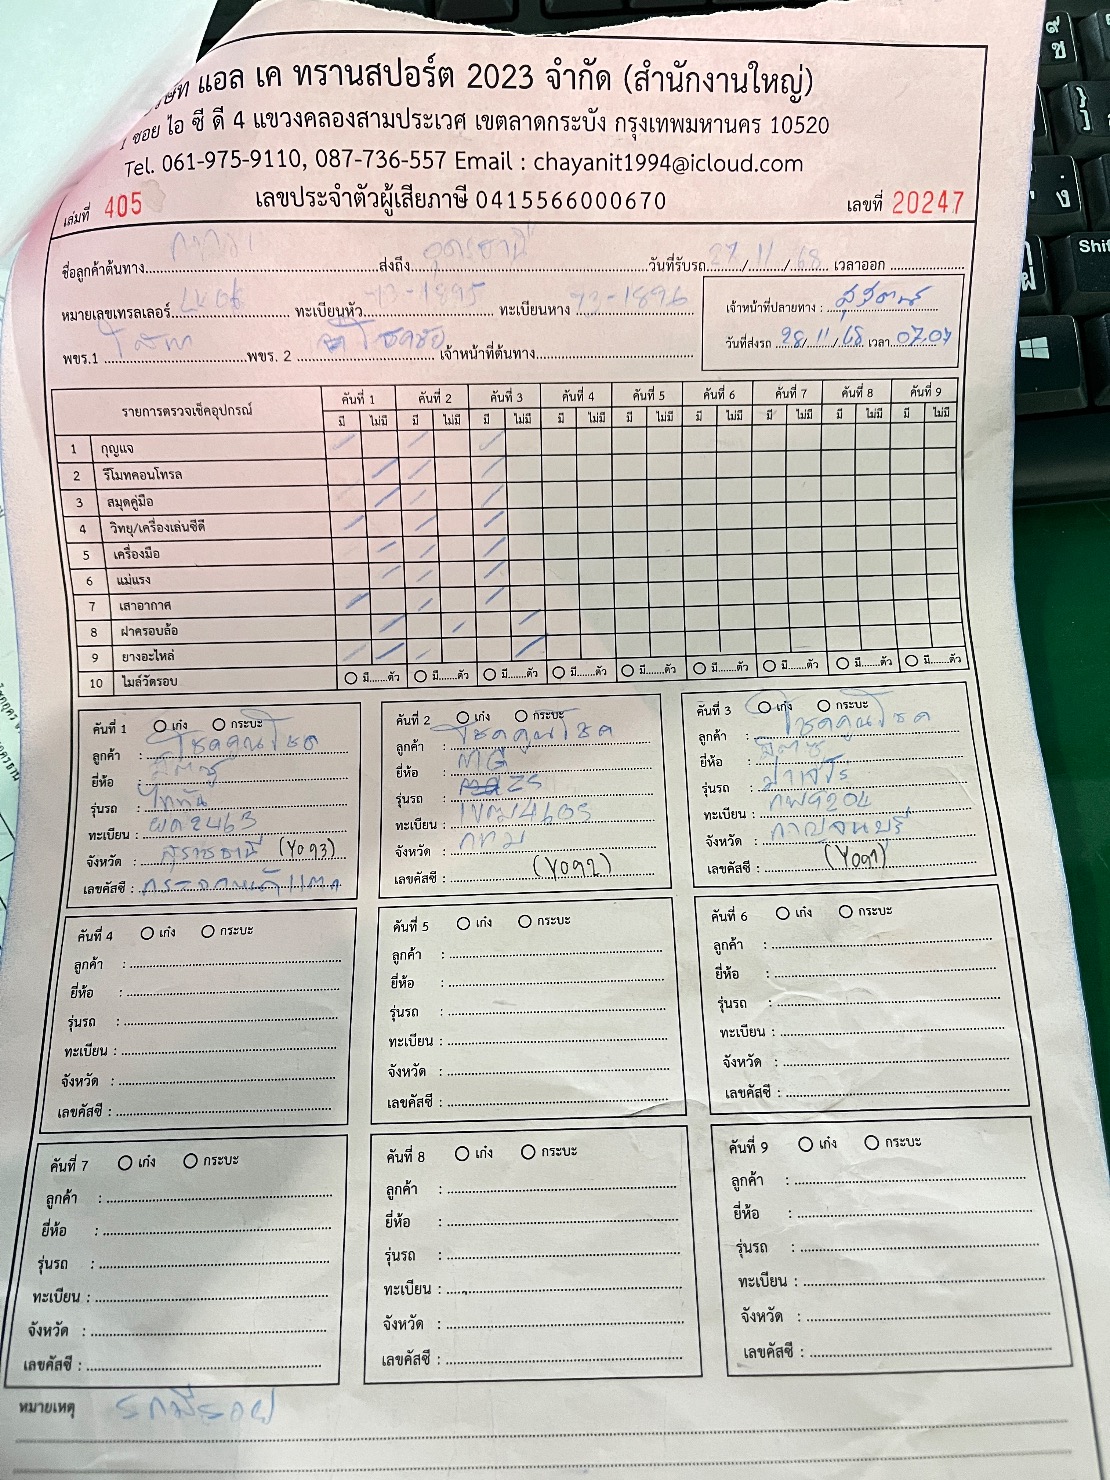 แอล เค ทรานสปอร์ต 2023 จำกัด (สำนักงานใหญ่)
ซอย ไอ ซี ดี 4 แขวงคลองสามประเวศ เขตลาดกระบัง กรุงเทพมหานคร 10520
Tel. 061-975-9110, 087-736-557 Email : chayanit1994@icloud.com
เล่มที่ 405 เลขประจำตัวผู้เสียภาษี 0415566000670 เลขที่ 20247
ชื่อลูกค้าต้นทาง ส่งถึง อุดรธานี วันที่รับรถ 27/11/68 เวลาออก
หมายเลขเทรลเลอร์ LK06 ทะเบียนหัว 73-1895 ทะเบียนหาง 73-1896 เจ้าหน้าที่ปลายทาง :
พขร.1 พขร. 2 โชคชัย เจ้าหน้าที่ต้นทาง วันที่ส่งรถ 28/11/68 เวลา 07.07
รายการตรวจเช็คอุปกรณ์ คันที่ 1 คันที่ 2 คันที่ 3 คันที่ 4 คันที่ 5 คันที่ 6 คันที่ 7 คันที่ 8 คันที่ 9
มี ไม่มี มี ไม่มี มี ไม่มี มี ไม่มี มี ไม่มี มี ไม่มี มี ไม่มี มี ไม่มี มี ไม่มี
1 กุญแจ
2 รีโมทคอนโทรล
3 สมุดคู่มือ
4 วิทยุ/เครื่องเล่นซีดี
5 เครื่องมือ
6 แม่แรง
7 เสาอากาศ
8 ฝาครอบล้อ
9 ยางอะไหล่
10 ไมล์วัดรอบ มี.......ตัว มี.......ตัว มี.......ตัว มี.......ตัว มี.......ตัว มี.......ตัว มี.......ตัว มี.......ตัว มี.......ตัว
คันที่ 1 เก๋ง กระบะ
ลูกค้า : โชคคูณโชค
ยี่ห้อ : มิตซู
รุ่นรถ : ไททัน
ทะเบียน : ผด2463
จังหวัด : สุราษธานี (Y093)
เลขคัสซี : กระจกหน้าแตก
คันที่ 2 เก๋ง กระบะ
ลูกค้า : โชคคูณโชค
ยี่ห้อ : MG
รุ่นรถ : ZS
ทะเบียน : 1ขฒ4605
จังหวัด : กทม
เลขคัสซี : (Y092)
คันที่ 3 เก๋ง กระบะ
ลูกค้า : โชคคูณโชค
ยี่ห้อ : มิตซู
รุ่นรถ : ปาเจโร
ทะเบียน : กพ9204
จังหวัด : กาญจนบุรี
เลขคัสซี : (Y091)
คันที่ 4 เก๋ง กระบะ
ลูกค้า :
ยี่ห้อ :
รุ่นรถ :
ทะเบียน :
จังหวัด :
เลขคัสซี :
คันที่ 5 เก๋ง กระบะ
ลูกค้า :
ยี่ห้อ :
รุ่นรถ :
ทะเบียน :
จังหวัด :
เลขคัสซี :
คันที่ 6 เก๋ง กระบะ
ลูกค้า :
ยี่ห้อ :
รุ่นรถ :
ทะเบียน :
จังหวัด :
เลขคัสซี :
คันที่ 7 เก๋ง กระบะ
ลูกค้า :
ยี่ห้อ :
รุ่นรถ :
ทะเบียน :
จังหวัด :
เลขคัสซี :
คันที่ 8 เก๋ง กระบะ
ลูกค้า :
ยี่ห้อ :
รุ่นรถ :
ทะเบียน :
จังหวัด :
เลขคัสซี :
คันที่ 9 เก๋ง กระบะ
ลูกค้า :
ยี่ห้อ :
รุ่นรถ :
ทะเบียน :
จังหวัด :
เลขคัสซี :
หมายเหตุ รถมีรอย